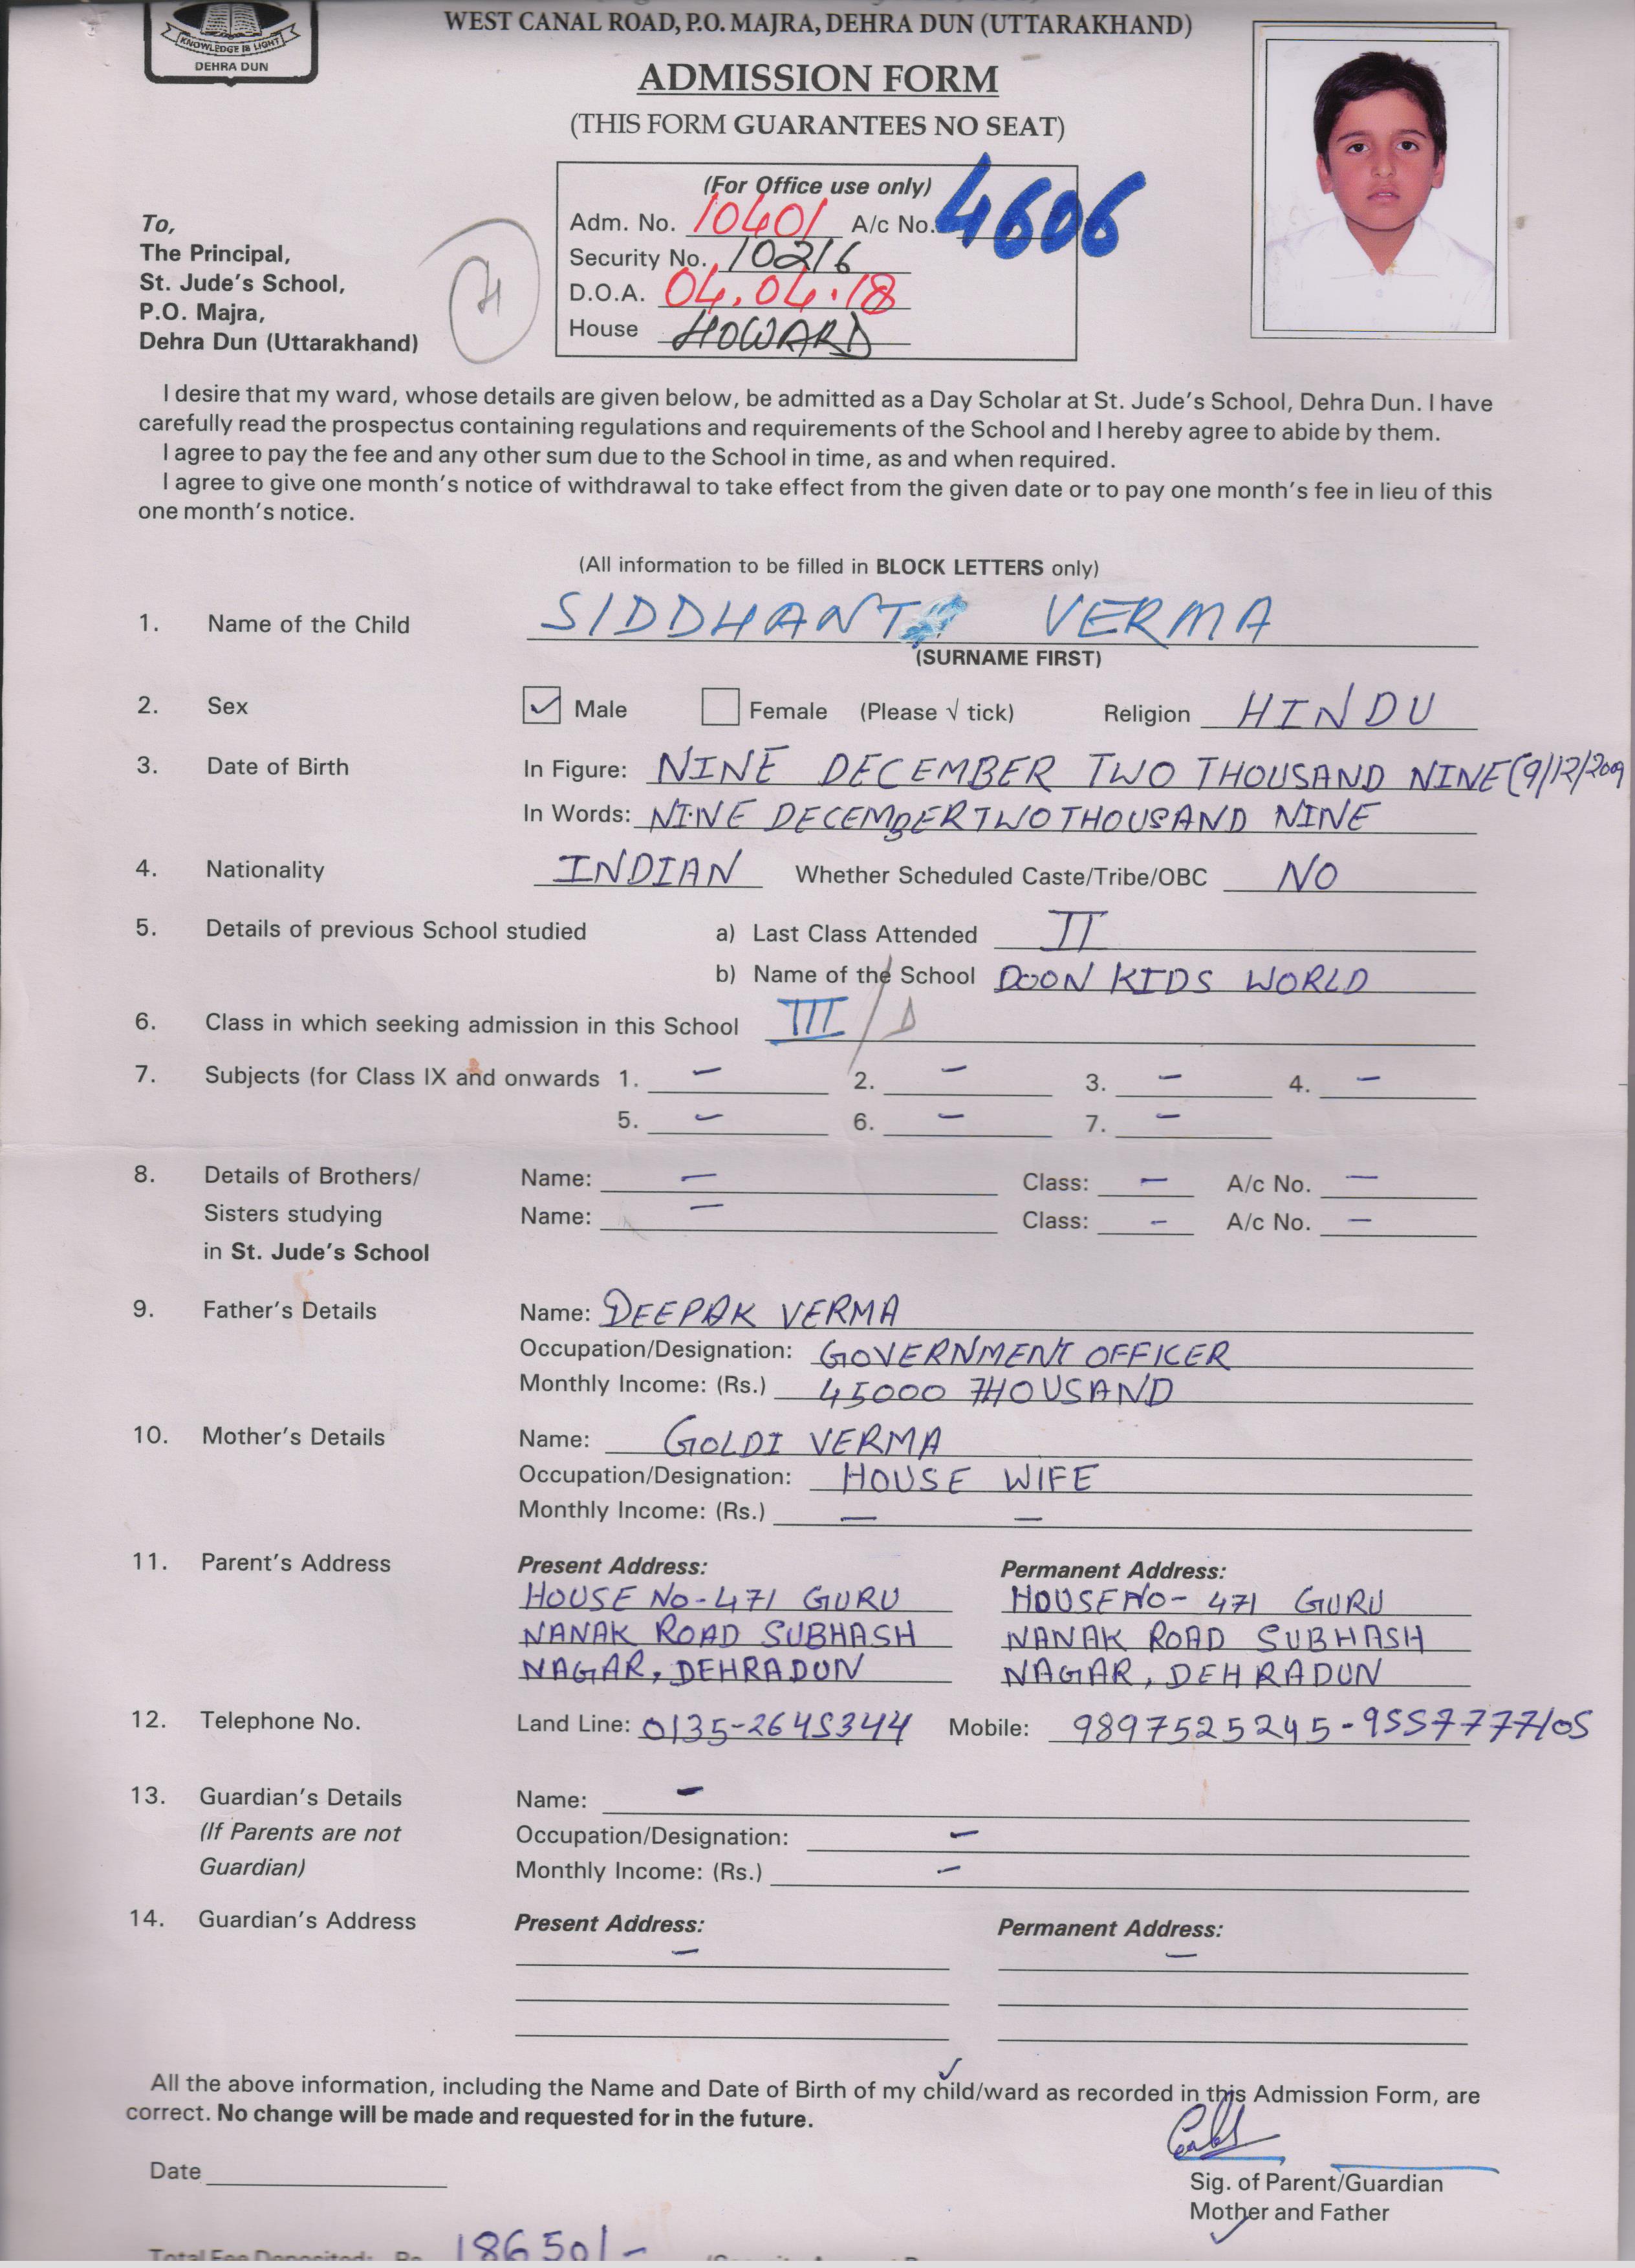 KNOWLEDGE IS LIGHT
DEHRA DUN
WEST CANAL ROAD, P.O. MAJRA, DEHRA DUN (UTTARAKHAND)
ADMISSION FORM
(THIS FORM GUARANTEES NO SEAT)
(For Office use only)
Adm. No. 10401 A/c No. 4606
Security No. 10216
D.O.A. 04.04.18
House HOWARD
To,
The Principal,
St. Jude's School,
P.O. Majra,
Dehra Dun (Uttarakhand)
H
I desire that my ward, whose details are given below, be admitted as a Day Scholar at St. Jude's School, Dehra Dun. I have
carefully read the prospectus containing regulations and requirements of the School and I hereby agree to abide by them.
I agree to pay the fee and any other sum due to the School in time, as and when required.
I agree to give one month's notice of withdrawal to take effect from the given date or to pay one month's fee in lieu of this
one month's notice.
(All information to be filled in BLOCK LETTERS only)
1. Name of the Child SIDDHANT VERMA
(SURNAME FIRST)
2. Sex ✓ Male Female (Please √ tick) Religion HINDU
3. Date of Birth In Figure: NINE DECEMBER TWO THOUSAND NINE (9/12/2009
In Words: NINE DECEMBER TWO THOUSAND NINE
4. Nationality INDIAN Whether Scheduled Caste/Tribe/OBC NO
5. Details of previous School studied a) Last Class Attended II
b) Name of the School DOON KIDS WORLD
6. Class in which seeking admission in this School III / D
7. Subjects (for Class IX and onwards 1. – 2. – 3. – 4. –
5. – 6. – 7. –
8. Details of Brothers/ Name: – Class: – A/c No. –
Sisters studying Name: – Class: – A/c No. –
in St. Jude's School
9. Father's Details Name: DEEPAK VERMA
Occupation/Designation: GOVERNMENT OFFICER
Monthly Income: (Rs.) 45000 THOUSAND
10. Mother's Details Name: GOLDI VERMA
Occupation/Designation: HOUSE WIFE
Monthly Income: (Rs.) – –
11. Parent's Address Present Address: Permanent Address:
HOUSE No-471 GURU HOUSE NO- 471 GURU
NANAK ROAD SUBHASH NANAK ROAD SUBHASH
NAGAR, DEHRADUN NAGAR, DEHRADUN
12. Telephone No. Land Line: 0135-2645344 Mobile: 9897525245-9557777105
13. Guardian's Details Name: –
(If Parents are not Occupation/Designation: –
Guardian) Monthly Income: (Rs.) –
14. Guardian's Address Present Address: Permanent Address:
– –
All the above information, including the Name and Date of Birth of my child/ward as recorded in this Admission Form, are
correct. No change will be made and requested for in the future.
Date
Sig. of Parent/Guardian
Mother and Father
Total Fee Deposited: Rs. 18650/-